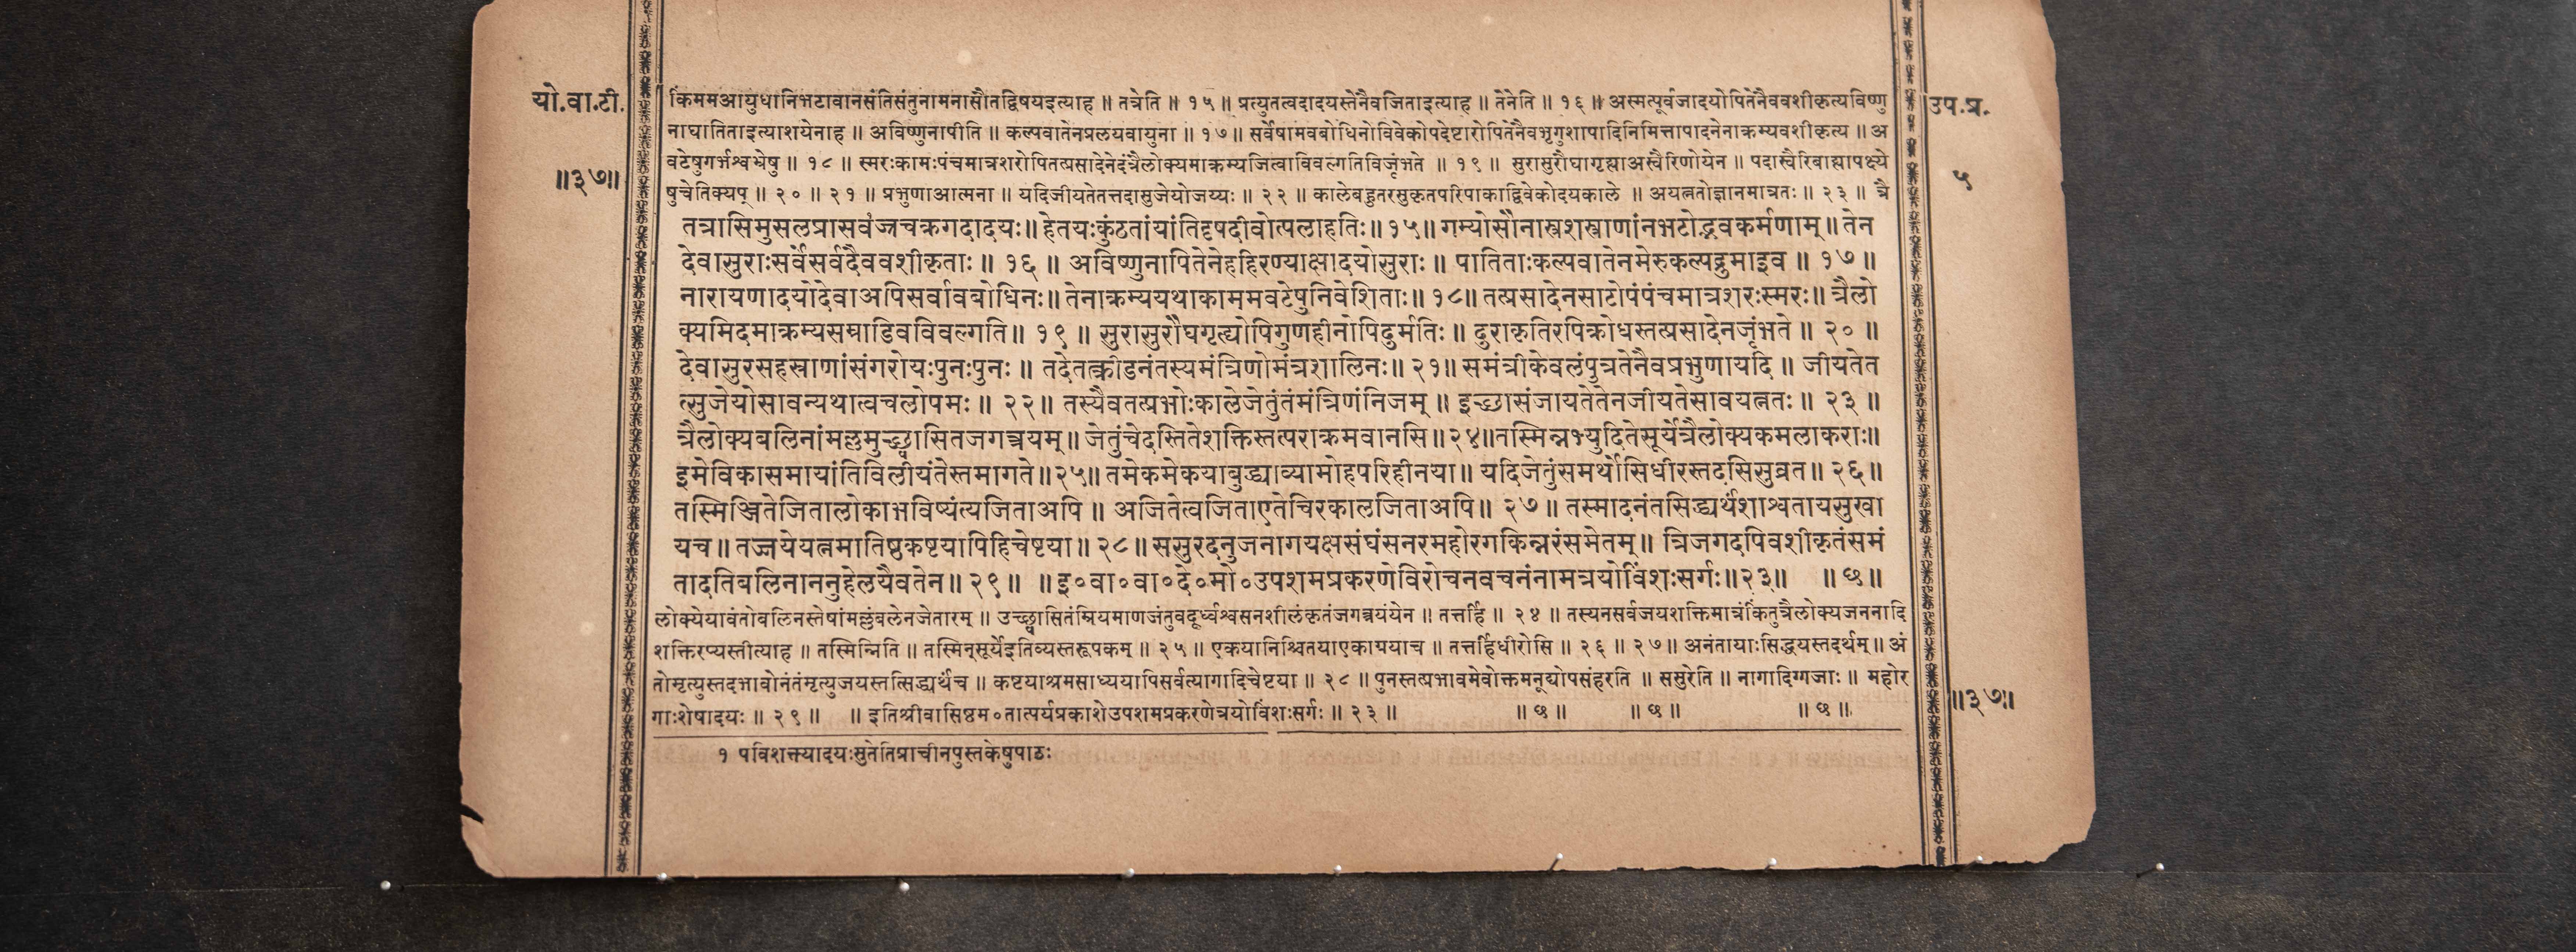 यो.वा.टी.
॥३७॥
किंममआयुधानिभटावानसंतिसंतुनामनासौतद्विषयइत्याह ॥ तत्रेति ॥ १५ ॥ प्रत्युतत्वदादयस्तेनैवजिताइत्याह ॥ तेनेति ॥ १६ ॥ अस्मत्पूर्वजादयोपितेनैववशीकृत्यविष्णु
नाघातिताइत्याशयेनाह ॥ अविष्णुनापीति ॥ कल्पवातेनप्रलयवायुना ॥ १७ ॥ सर्वेषामवबोधिनोविवेकोपदेष्टारोपितेनैवभृगुशापादिनिमित्तापादनेनाक्रम्यवशीकृत्य ॥ अ
वटेषुगर्भश्वभ्रेषु ॥ १८ ॥ स्मरःकामःपंचमात्रशरोपितत्प्रसादेनेदंत्रैलोक्यमाक्रम्यजित्वाविवल्गतिविजृंभते ॥ १९ ॥ सुरासुरौघागृह्याअस्वैरिणोयेन ॥ पदास्वैरिबाह्यापक्ष्ये
षुचेतिक्यप् ॥ २० ॥ २१ ॥ प्रभुणाआत्मना ॥ यदिजीयतेतत्तदासुजेयोजय्यः ॥ २२ ॥ कालेबहुतरसुकृतपरिपाकाद्विवेकोदयकाले ॥ अयत्नतोज्ञानमात्रतः ॥ २३ ॥ त्रै
तत्रासिमुसलप्रासवज्रचक्रगदादयः॥ हेतयःकुंठतांयांतिदृषदीवोत्पलाहतिः॥ १५॥ गम्योसौनास्त्रशस्त्राणांनभटोद्भवकर्मणाम् ॥ तेन
देवासुराःसर्वेसर्वदैववशीकृताः ॥ १६ ॥ अविष्णुनापितेनेहहिरण्याक्षादयोसुराः ॥ पातिताःकल्पवातेनमेरुकल्पद्रुमाइव ॥ १७ ॥
नारायणादयोदेवाअपिसर्वावबोधिनः॥ तेनाक्रम्ययथाकाममवटेषुनिवेशिताः॥ १८॥ तत्प्रसादेनसाटोपंपंचमात्रशरःस्मरः॥ त्रैलो
क्यमिदमाक्रम्यसम्राडिवविवल्गति॥ १९ ॥ सुरासुरौघगृह्योपिगुणहीनोपिदुर्मतिः ॥ दुराकृतिरपिक्रोधस्तत्प्रसादेनजृंभते ॥ २० ॥
देवासुरसहस्राणांसंगरोयःपुनःपुनः ॥ तदेतत्क्रीडनंतस्यमंत्रिणोमंत्रशालिनः॥ २१॥ समंत्रीकेवलंपुत्रतेनैवप्रभुणायदि ॥ जीयतेत
त्सुजेयोसावन्यथात्वचलोपमः ॥ २२॥ तस्यैवतत्प्रभोःकालेजेतुंतंमंत्रिणंनिजम् ॥ इच्छासंजायतेतेनजीयतेसावयत्नतः ॥ २३ ॥
त्रैलोक्यबलिनांमल्लमुच्छ्वासितजगत्त्रयम्॥ जेतुंचेदस्तितेशक्तिस्तत्पराक्रमवानसि॥२४॥तस्मिन्नभ्युदितेसूर्येत्रैलोक्यकमलाकराः॥
इमेविकासमायांतिविलीयंतेस्तमागते॥२५॥ तमेकमेकयाबुद्ध्याव्यामोहपरिहीनया॥ यदिजेतुंसमर्थोसिधीरस्तदसिसुव्रत॥ २६॥
तस्मिञ्जितेजितालोकाभविष्यंत्यजिताअपि ॥ अजितेत्वजिताएतेचिरकालजिताअपि॥ २७ ॥ तस्मादनंतसिद्ध्यर्थंशाश्वतायसुखा
यच॥ तज्जयेयत्नमातिष्ठकष्टयापिहिचेष्टया॥ २८॥ ससुरदनुजनागयक्षसंघंसनरमहोरगकिन्नरंसमेतम्॥ त्रिजगदपिवशीकृतंसमं
तादतिबलिनाननुहेलयैवतेन॥ २९॥ ॥इ०वा०वा०दे०मो०उपशमप्रकरणेविरोचनवचनंनामत्रयोविंशःसर्गः॥२३॥ ॥छ॥
लोक्येयावंतोबलिनस्तेषांमल्लंबलेनजेतारम् ॥ उच्छ्वासितंम्रियमाणजंतुवदूर्ध्वश्वसनशीलंकृतंजगत्त्रयंयेन ॥ तत्तर्हि ॥ २४ ॥ तस्यनसर्वजयशक्तिमात्रंकिंतुत्रैलोक्यजननादि
शक्तिरप्यस्तीत्याह ॥ तस्मिन्निति ॥ तस्मिन्सूर्येइतिव्यस्तरूपकम् ॥ २५ ॥ एकयानिश्चितयाएकाग्रयाच ॥ तत्तर्हिधीरोसि ॥ २६ ॥ २७॥ अनंतायाःसिद्धयस्तदर्थम्॥ अं
तोमृत्युस्तदभावोनंतंमृत्युजयस्तत्सिद्ध्यर्थंच ॥ कष्टयाश्रमसाध्ययापिसर्वत्यागादिचेष्टया ॥ २८ ॥ पुनस्तत्प्रभावमेवोक्तमनूद्योपसंहरति ॥ ससुरेति ॥ नागादिग्गजाः ॥ महोर
गाःशेषादयः ॥ २९ ॥ ॥ इतिश्रीवासिष्ठम०तात्पर्यप्रकाशेउपशमप्रकरणेत्रयोविंशःसर्गः ॥ २३ ॥ ॥ छ ॥ ॥ छ ॥ ॥ छ ॥
१ पविशक्त्यादयःसुतेतिप्राचीनपुस्तकेषुपाठः
उप.प्र.
५
॥३७॥